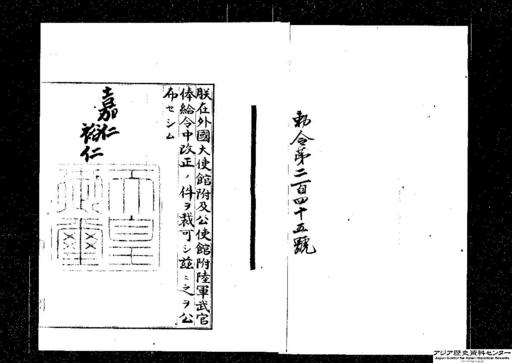 勅令第二百四十五號
朕在外國大使館附及公使館附陸軍武官
俸給令中改正ノ件ヲ裁可シ茲ニ之ヲ公
布セシム
嘉仁
裕仁
天皇
御璽
アジア歴史資料センター
Japan Center for Asian Historical Records